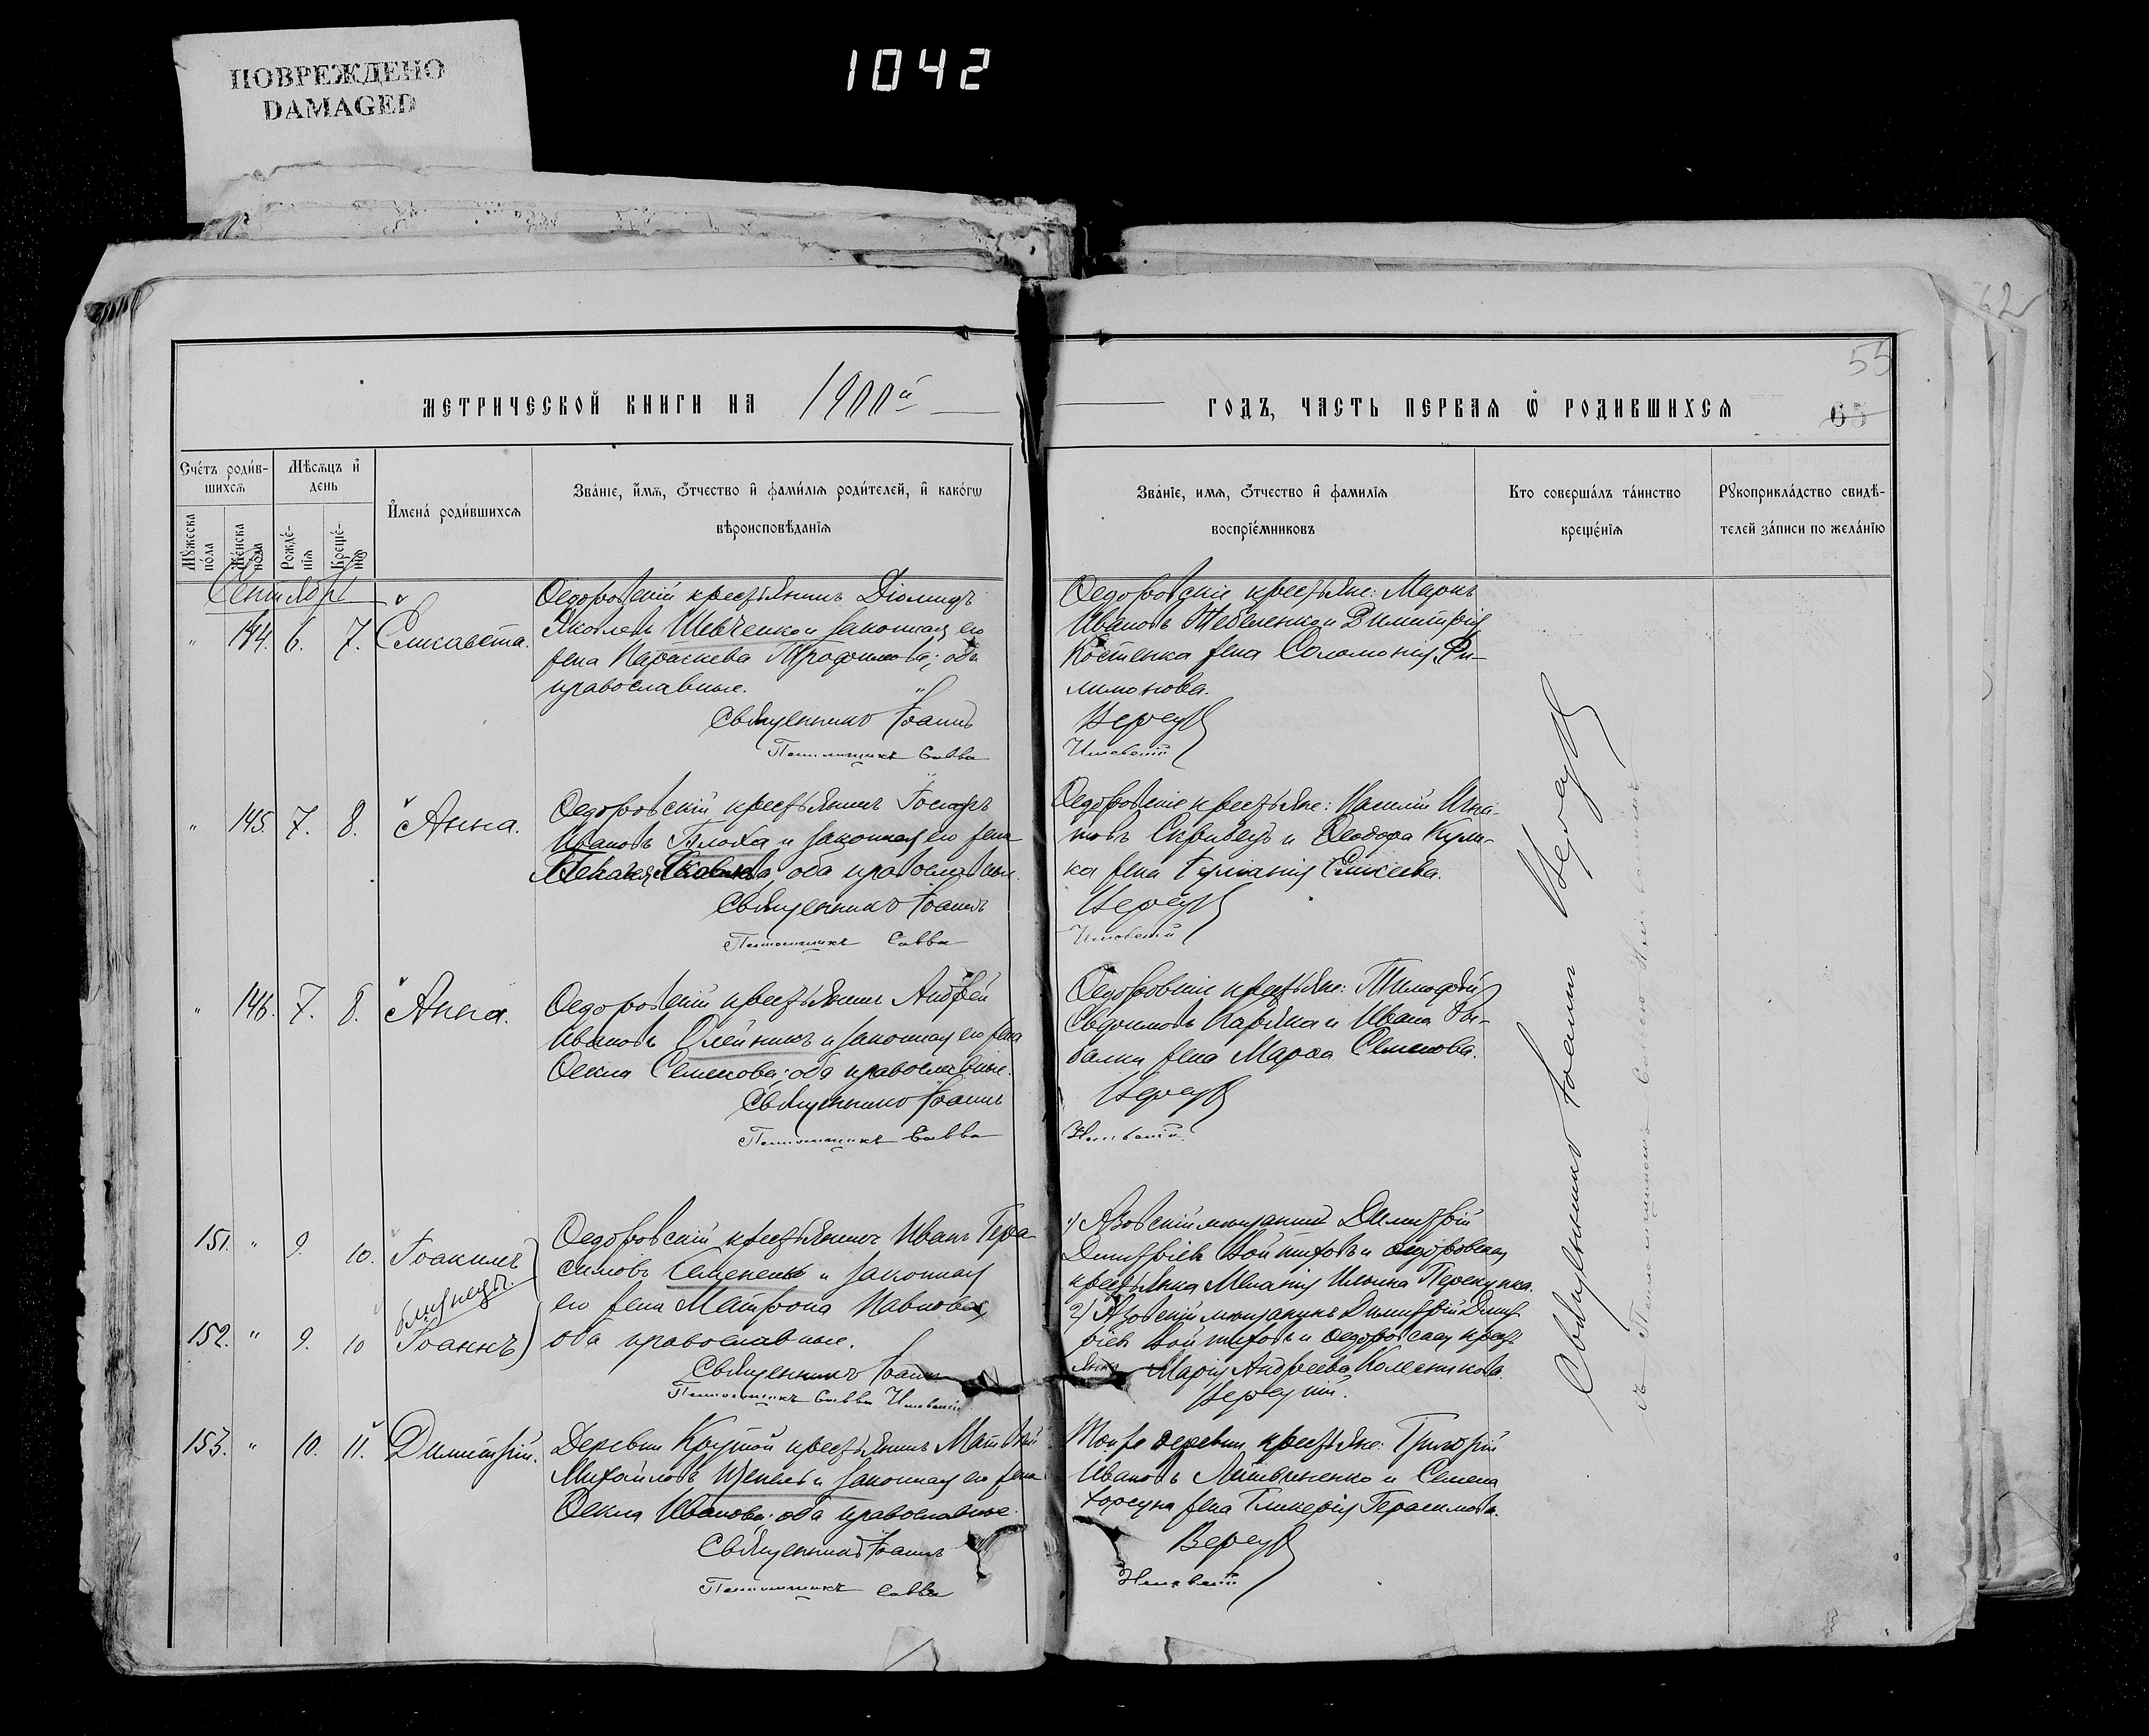 ПОВРЕЖДЕНО
DAMAGED
1042
62
55
65
МЕТРИЧЕСКОЙ КНИГИ НА 1900й
ГОДЪ, ЧАСТЬ ПЕРВАЯ Ѿ РОДИВШИХСЯ
Счетъ родив-
шихся
Мужеска пола
Женска пола
Мѣсяцъ и день
Рожде-
нія
Креще-
нія
Имена родившихся
Званіе, имя, отчество и фамилія родителей, и какогѡ
вѣроисповѣданія
Званіе, имя, отчество и фамилія
воспріемниковъ
Кто совершалъ таинство
крещенія
Рукоприкладство свидѣ-
телей записи по желанію
Сентябрь
" 144. 6. 7. Елисавета.
Ѳедоровскій крестьянинъ Діомидъ
Яковлевъ Шевченко и законная его
жена Параскева Трофимова; оба
православные.
Священникъ Іоаннъ
Псаломщикъ Савва
Ѳедоровскіе крестьяне: Маркъ
Ивановъ и Димитрія
Костенка жена Соломонія Фи-
лимонова.
" 145. 7. 8. Анна.
Ѳедоровскій крестьянинъ Іосифъ
Ивановъ Блоха и законная его жена
оба православные.
Священникъ Іоаннъ
Псаломщикъ Савва
Ѳедоровскіе крестьяне:
и Ѳеодора Кули-
ка жена Елисеева.
" 146. 7. 8. Анна.
Ѳедоровскій крестьянинъ Андрей
Ивановъ Олейникъ и законная его жена
Ѳекла Семенова; оба православные.
Священникъ Іоаннъ
Псаломщикъ Савва
Ѳедоровскіе крестьяне: Тимоѳей
Евдокимовъ и Ивана Ры-
балки жена Марѳа Семенова.
151. " 9. 10. Іоакимъ
близнецы.
152. " 9. 10 Іоаннъ
Ѳедоровскій крестьянинъ Иванъ Гера-
симовъ и законная
его жена Матрона Павлова
оба православные.
Священникъ Іоаннъ
Псаломщикъ Савва
1) Азовскій мѣщанинъ Димитрій
Димитріевъ Войтиховъ и ѳедоровская
крестьянка Меланія Ильина
2) Азовскій мѣщанинъ Димитрій Димит-
ріевъ Войтиховъ и ѳедоровская крест-
янка Марія Андреева Колесникова.
153. " 10. 11. Димитрій.
Деревни Крутой крестьянинъ Матвѣй
Михайловъ и законная его жена
Ѳекла Иванова; оба православные.
Священникъ Іоаннъ
Псаломщикъ Савва
Той же деревни крестьяне: Григорій
Ивановъ Литвиненко и Семена
Хорсуна жена Гликерія Герасимова.
Священникъ Іоаннъ